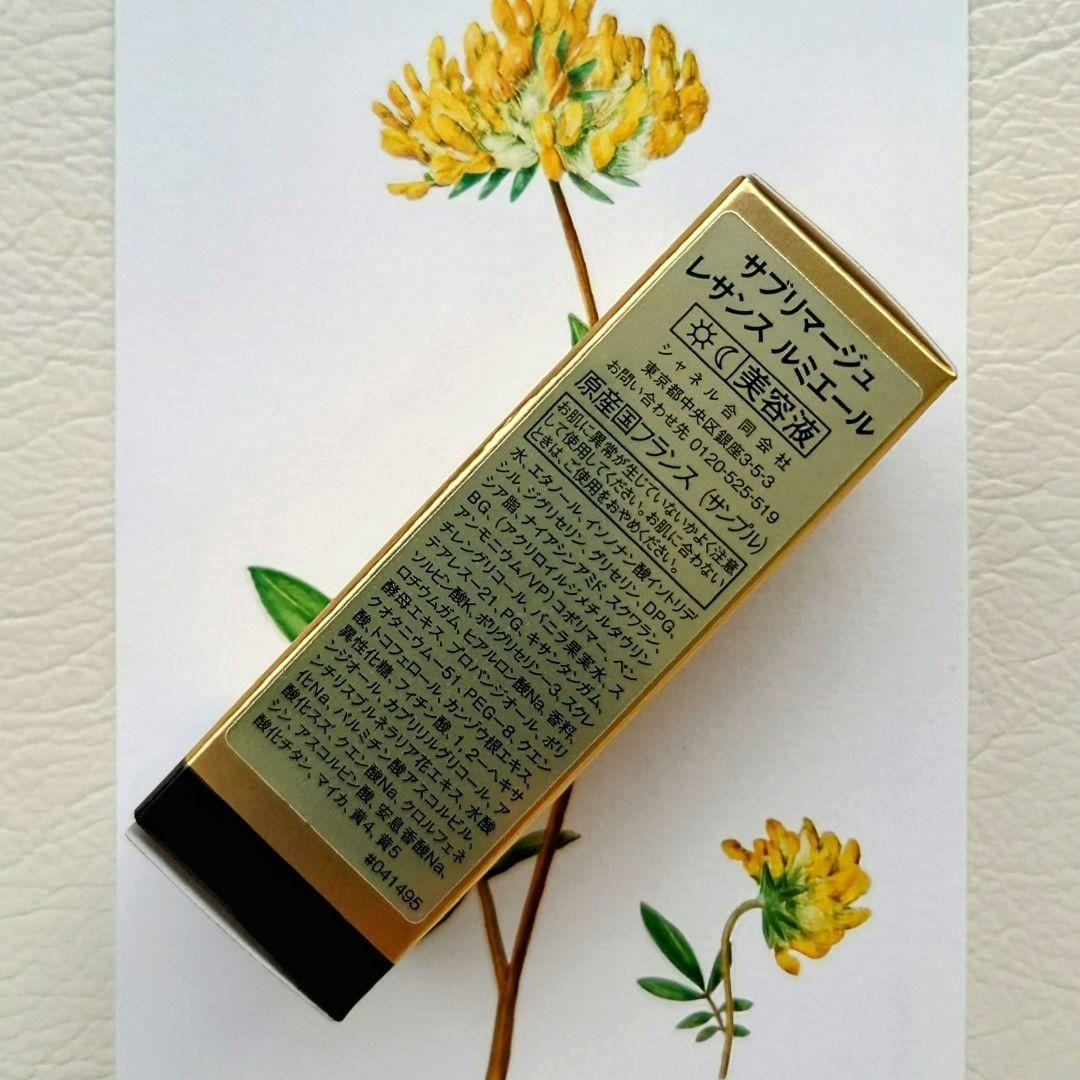 サブリマージュ
レサンス ルミエール
美容液
シャネル合同会社
東京都中央区銀座3-5-3
お問い合わせ先 0120-525-519
原産国フランス (サンプル)
お肌に異常が生じていないかよく注意
して使用してください。お肌に合わない
ときは、ご使用をおやめください。
水、エタノール、イソノナン酸イソトリデ
シル、ジグリセリン、グリセリン、DPG、
シア脂、ナイアシンアミド、スクワラン、
BG、(アクリロイルジメチルタウリン
アンモニウム/VP)コポリマー、ペン
チレングリコール、バニラ果実水、ス
テアレス-21、PG、キサンタンガム、
ソルビン酸K、ポリグリセリン-3、スクレ
ロチウムガム、ヒアルロン酸Na、香料、
酵母エキス、プロパンジオール、ポリ
クオタニウム-51、PEG-8、クエン
酸、トコフェロール、カンゾウ根エキス、
異性化糖、フィチン酸、1,2-ヘキサ
ンジオール、カプリリルグリコール、ア
ンチリスブルネラリア花エキス、水酸
化Na、パルミチン酸アスコルビル、
酸化スズ、クエン酸Na、クロルフェネ
シン、アスコルビン酸、安息香酸Na、
酸化チタン、マイカ、黄4、黄5
#041495